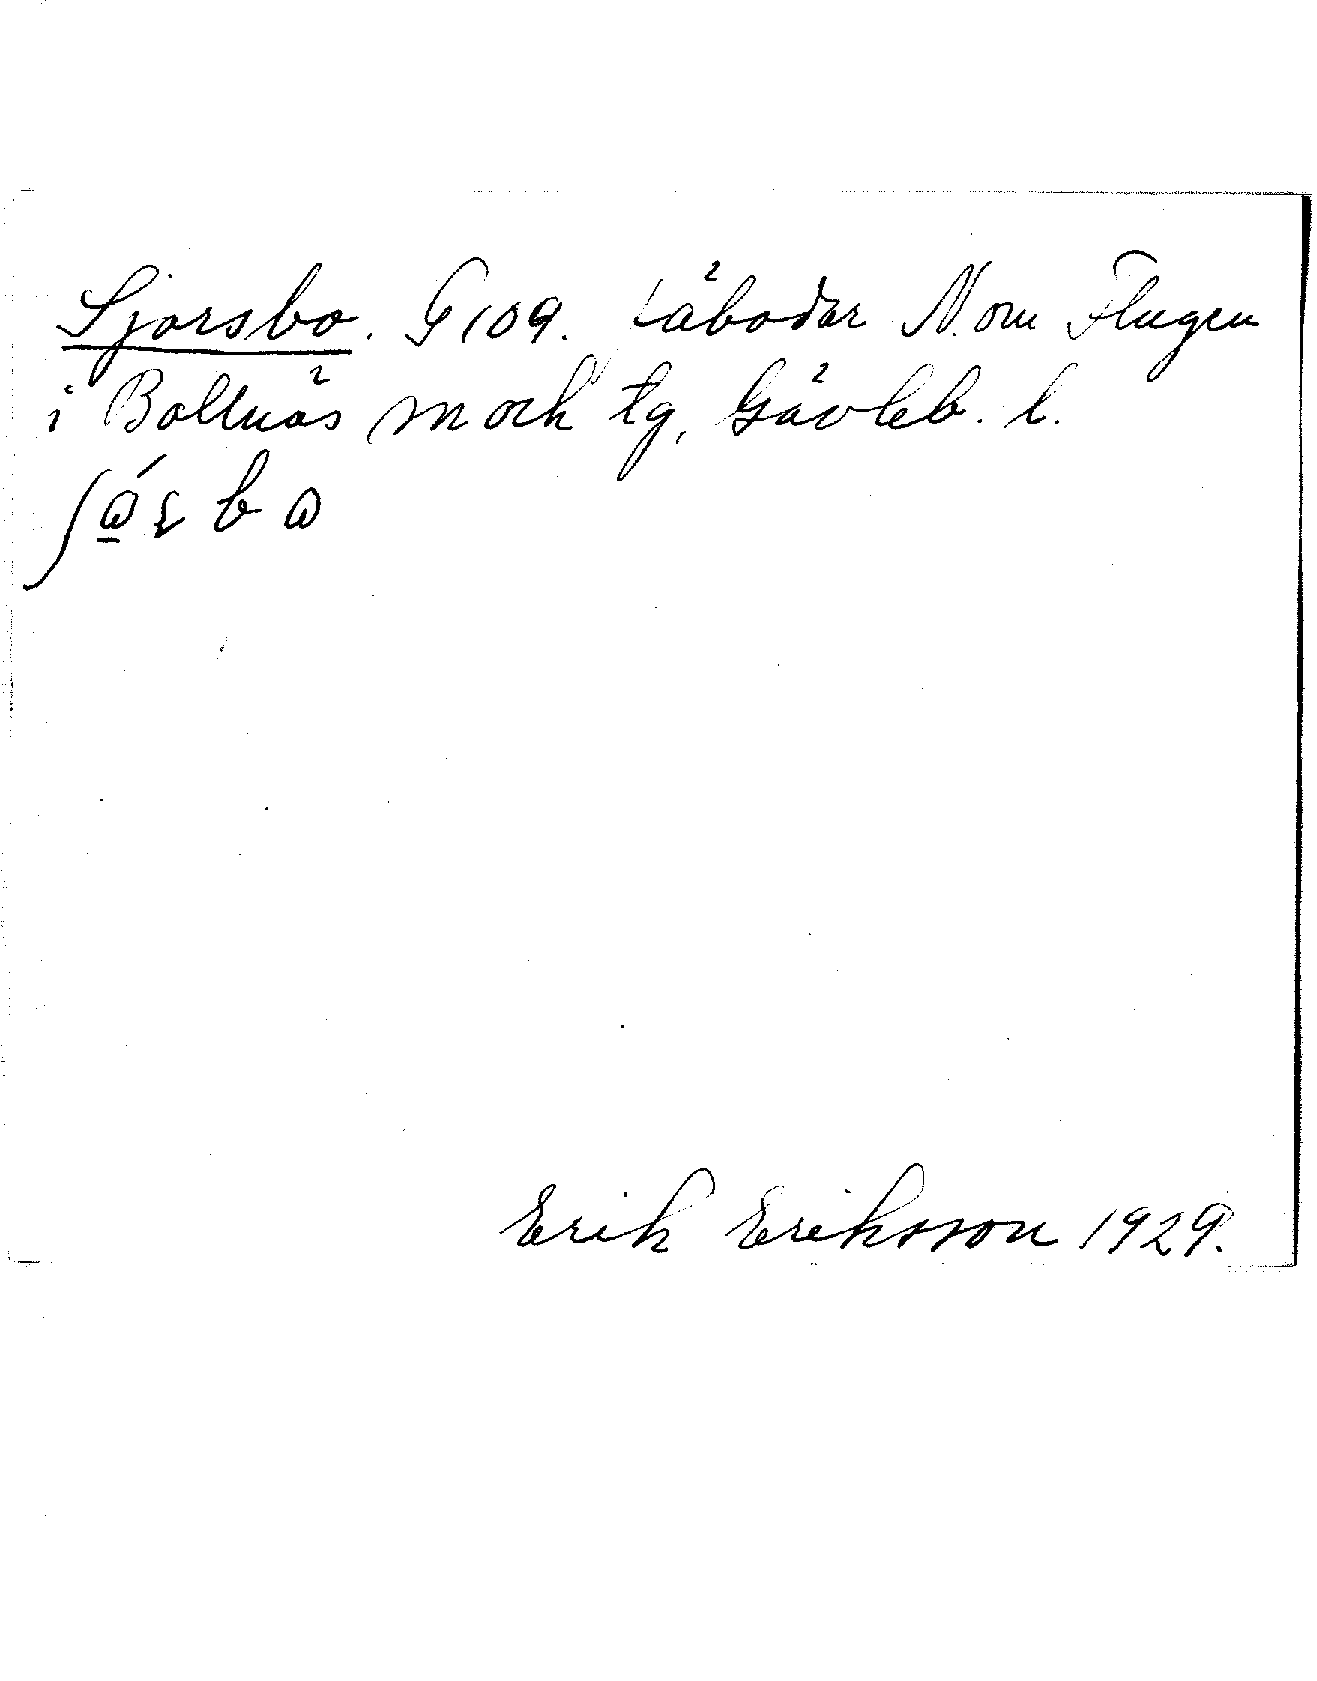 Sjorsbo. G 109. Fäbodar N. om Flugen
i Bollnäs sn och tg, Gävleb. l.
Erik Eriksson 1929.